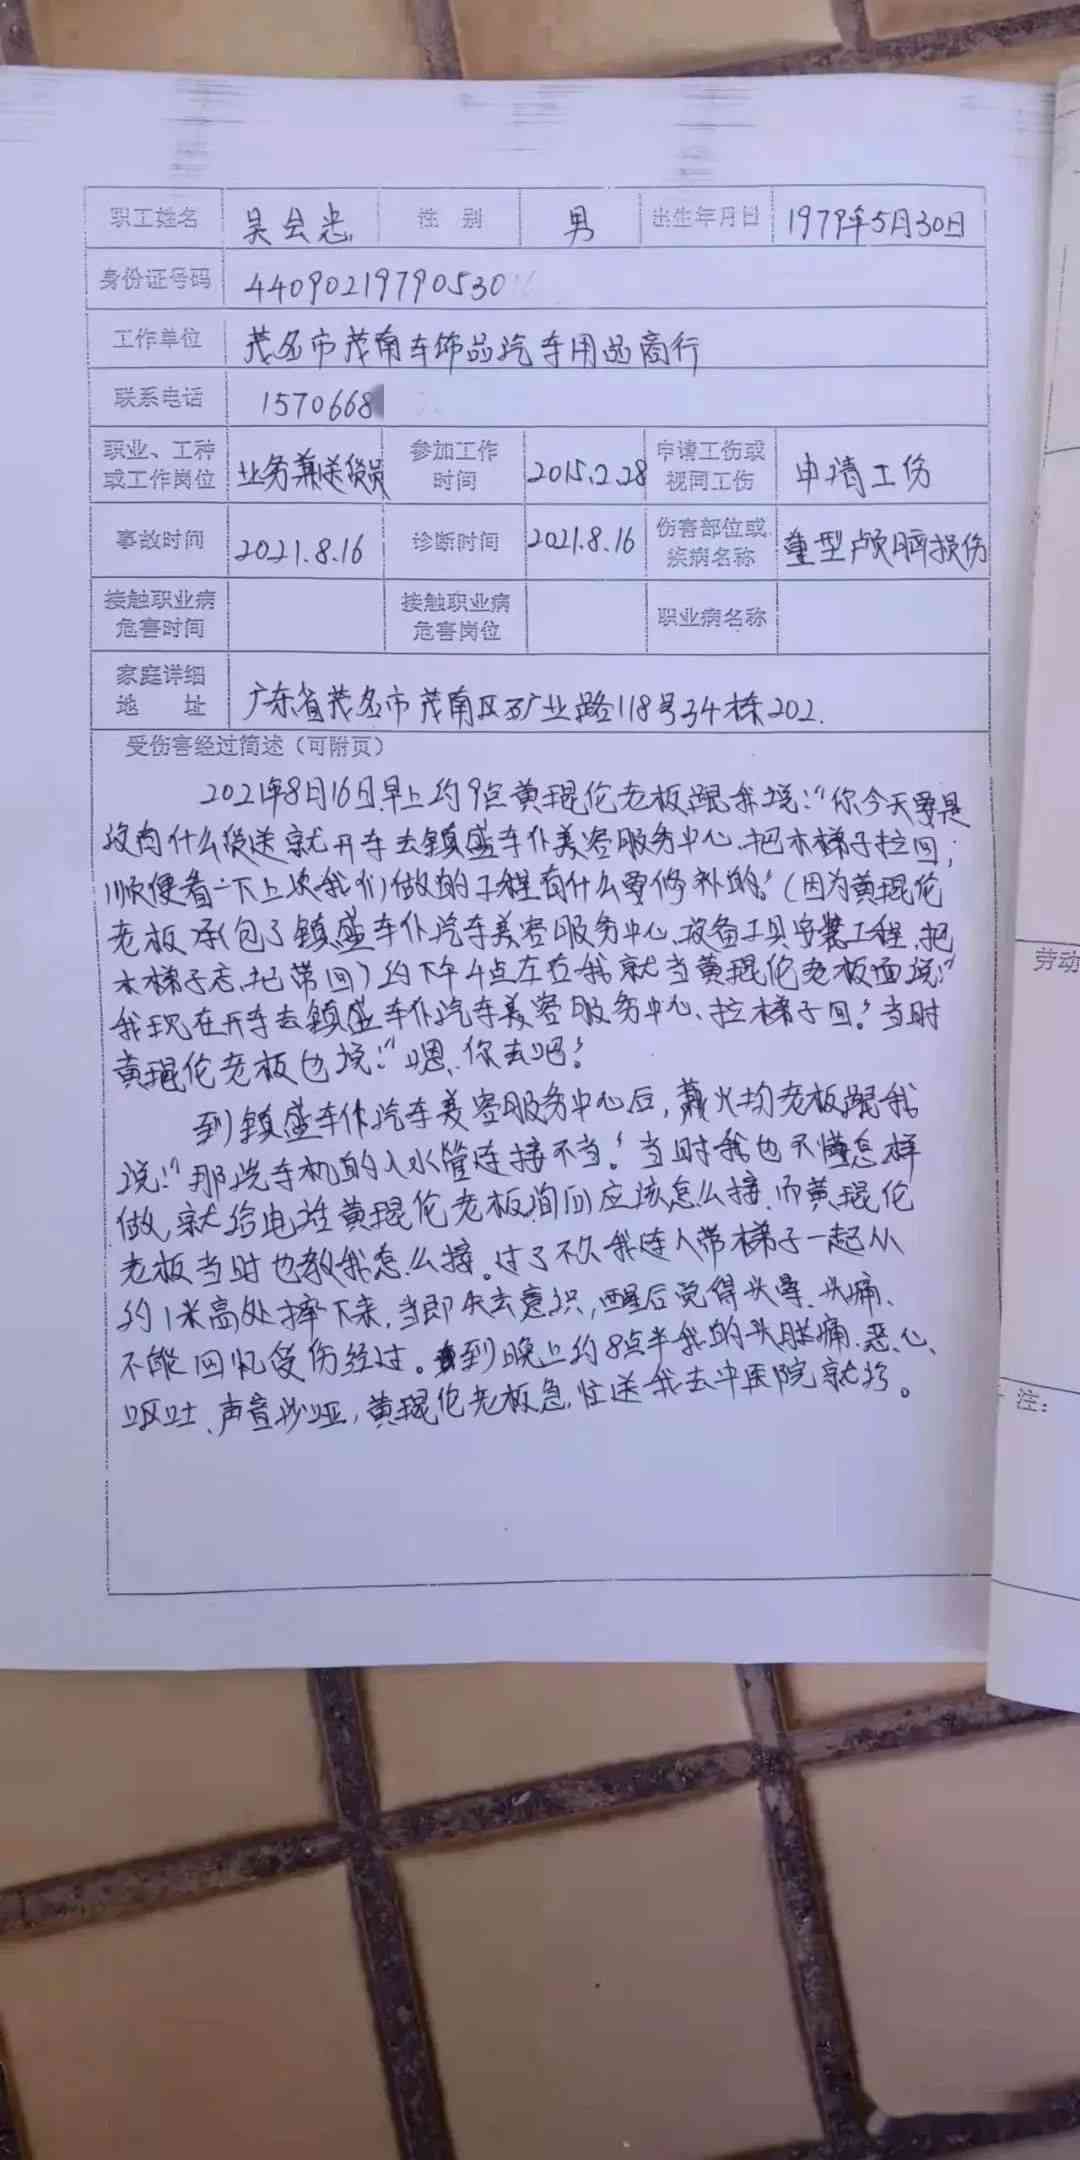 职工姓名 吴会忠 性 别 男 出生年月日 1979年5月30日
身份证号码 44090219790530
工作单位 茂名市茂南车饰品汽车用品商行
联系电话 1570668
职业、工种或工作岗位 业务兼送货员 参加工作时间 2015.2.28 申请工伤或视同工伤 申请工伤
事故时间 2021.8.16 诊断时间 2021.8.16 伤害部位或疾病名称 重型颅脑损伤
接触职业病危害时间 接触职业病危害岗位 职业病名称
家庭详细地 址 广东省茂名市茂南区矿业路118号34栋202.
受伤害经过简述（可附页）
2021年8月16日早上约9点黄琨伦老板跟我说:"你今天要是
没有什么货送就开车去镇盛车仆美容服务中心、把木梯子拉回;
顺便看一下上次我们做的工程有什么要修补的."(因为黄琨伦
老板承包了镇盛车仆汽车美容服务中心、设备工具安装工程、把
木梯子忘记带回)约下午4点左右我就当黄琨伦老板面说:"
我现在开车去镇盛车仆汽车美容服务中心、拉梯子回."当时
黄琨伦老板也说:"嗯、你去吧."
到镇盛车仆汽车美容服务中心后,戴火均老板跟我
说:"那洗车机的入水管连接不当."当时我也不懂怎样
做、就给电话黄琨伦老板询问应该怎么接、而黄琨伦
老板当时也教我怎么接。过了不久我连人带梯子一起从
约1米高处摔下来,当即失去意识,醒后觉得头晕、头痛、
不能回忆受伤经过。到晚上约8点半我的头胀痛、恶心、
呕吐、声音沙哑,黄琨伦老板急忙送我去中医院就诊。
劳动
注: